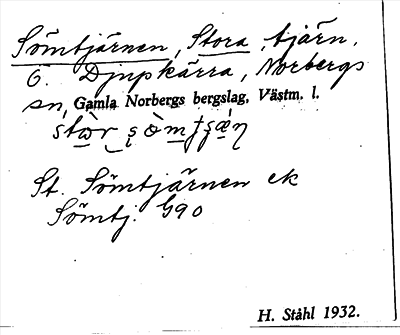 Sömtjärnen, Stora, tjärn.
6. Djupkärra, Norbergs
sn, Gamla Norbergs bergslag, Västm. l.
St. Sömtjärnen ek
Sömtj. G90
H. Ståhl 1932.